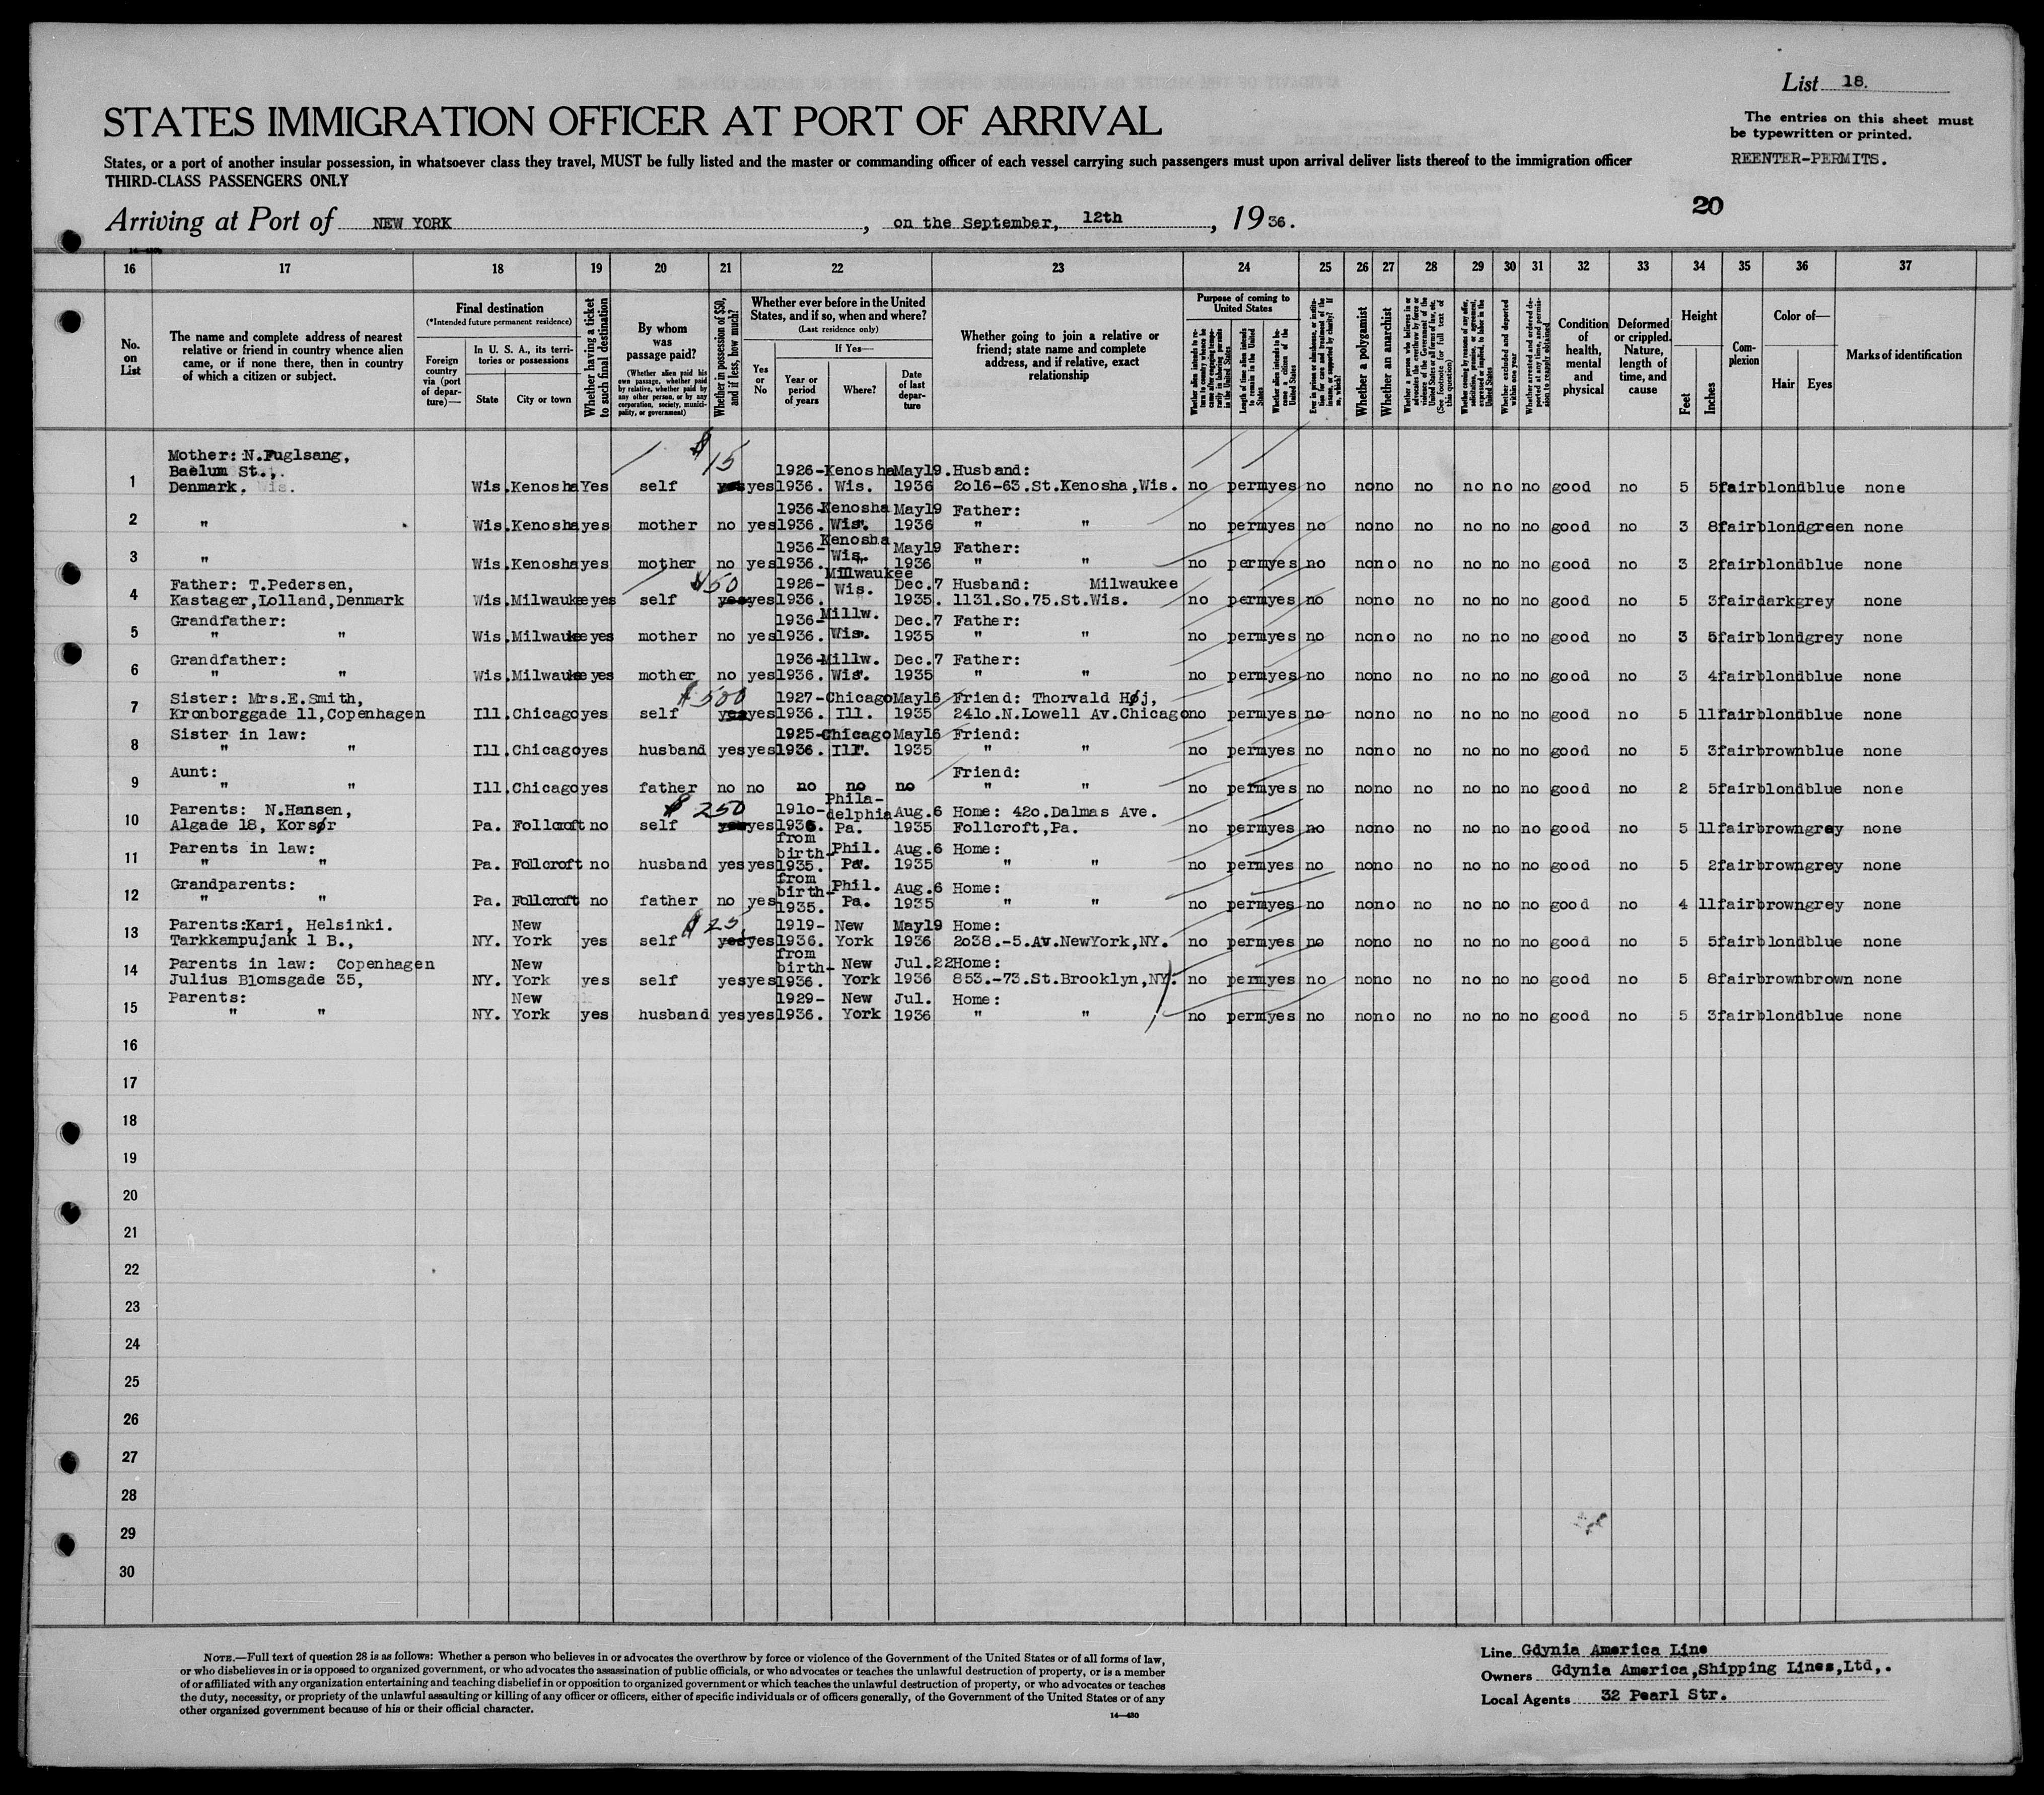 List 18.
STATES IMMIGRATION OFFICER AT PORT OF ARRIVAL
The entries on this sheet must
be typewritten or printed.
States, or a port of another insular possession, in whatsoever class they travel, MUST be fully listed and the master or commanding officer of each vessel carrying such passengers must upon arrival deliver lists thereof to the immigration officer
REENTER-PERMITS.
THIRD-CLASS PASSENGERS ONLY
20
Arriving at Port of NEW YORK, on the September, 12th, 1936.
16 17 18 19 20 21 22 23 24 25 26 27 28 29 30 31 32 33 34 35 36 37
No. on List
The name and complete address of nearest
relative or friend in country whence alien
came, or if none there, then in country
of which a citizen or subject.
Final destination
(*Intended future permanent residence)
Foreign country via (port of departure)—
In U. S. A., its territories or possessions
State
City or town
Whether having a ticket to such final destination
By whom was passage paid?
(Whether alien paid his own passage, whether paid by relative, whether paid by any other person, or by any corporation, society, municipality, or government)
Whether in possession of $50, and if less, how much?
Whether ever before in the United States, and if so, when and where?
(Last residence only)
Yes or No
If Yes—
Year or period of years
Where?
Date of last departure
Whether going to join a relative or
friend; state name and complete
address, and if relative, exact
relationship
Purpose of coming to United States
Whether alien intends to return to country whence he came after engaging temporarily in laboring pursuits in the United States
Length of time alien intends to remain in the United States
Whether alien intends to become a citizen of the United States
Ever in prison or almshouse, or institution for care and treatment of the insane, or supported by charity? If so, which?
Whether a polygamist
Whether an anarchist
Whether a person who believes in or advocates the overthrow by force or violence of the Government of the United States or all forms of law, etc. (See footnote for full text of this question)
Whether coming by reason of any offer, solicitation, promise, or agreement, expressed or implied, to labor in the United States
Whether excluded and deported within one year
Whether arrested and ordered deported at any time, and permission to reapply obtained
Condition of health, mental and physical
Deformed or crippled. Nature, length of time, and cause
Height
Feet
Inches
Complexion
Color of—
Hair
Eyes
Marks of identification
Mother: N.Fuglsang,
Baelum St.,
1 Denmark. Wis. Kenosha Yes self $15 yes yes 1926-1936. Kenosha Wis. May19. 1936 Husband: 2o16-63.St.Kenosha,Wis. no perm yes no no no no no no no good no 5 5 fair blond blue none
2 " Wis. Kenosha yes mother no yes 1936-1936. Kenosha Wis. May19 1936 Father: " " no perm yes no no no no no no no good no 3 8 fair blond green none
3 " Wis. Kenosha yes mother no yes 1936-1936. Kenosha Wis. May19 1936 Father: " " no perm yes no no no no no no no good no 3 2 fair blond blue none
Father: T.Pedersen,
4 Kastager,Lolland,Denmark Wis. Milwaukee yes self $50 yes yes 1926-1936. Milwaukee Wis. Dec.7 1935. Husband: Milwaukee 1131.So.75.St.Wis. no perm yes no no no no no no no good no 5 3 fair dark grey none
Grandfather:
5 " " Wis. Milwaukee yes mother no yes 1936-1936. Millw. Wis. Dec.7 1935 Father: " " no perm yes no no no no no no no good no 3 5 fair blond grey none
Grandfather:
6 " " Wis. Milwaukee yes mother no yes 1936-1936. Millw. Wis. Dec.7 1935 Father: " " no perm yes no no no no no no no good no 3 4 fair blond blue none
Sister: Mrs.E.Smith,
7 Kronborggade 11,Copenhagen Ill. Chicago yes self $500 yes yes 1927-1936. Chicago Ill. May16 1935 Friend: Thorvald Høj, 241o.N.Lowell Av.Chicago no perm yes no no no no no no no good no 5 11 fair blond blue none
Sister in law:
8 " " Ill. Chicago yes husband yes yes 1925-1936. Chicago Ill. May16 1935 Friend: " " no perm yes no no no no no no no good no 5 3 fair brown blue none
Aunt:
9 " " Ill. Chicago yes father no no no no no Friend: " " no perm yes no no no no no no no good no 2 5 fair blond blue none
Parents: N.Hansen,
10 Algade 18, Korsør Pa. Follcroft no self $250 yes yes 191o-1936. Philadelphia Pa. Aug.6 1935 Home: 42o.Dalmas Ave. Follcroft,Pa. no perm yes no no no no no no no good no 5 11 fair brown grey none
Parents in law:
11 " " Pa. Follcroft no husband yes yes from birth-1935. Phil. Pa. Aug.6 1935 Home: " " no perm yes no no no no no no no good no 5 2 fair brown grey none
Grandparents:
12 " " Pa. Follcroft no father no yes from birth-1935. Phil. Pa. Aug.6 1935 Home: " " no perm yes no no no no no no no good no 4 11 fair brown grey none
Parents:Kari, Helsinki.
13 Tarkkampujank 1 B., NY. New York yes self $25 yes yes 1919-1936. New York May19 1936 Home: 2o38.-5.Av.NewYork,NY. no perm yes no no no no no no no good no 5 5 fair blond blue none
Parents in law: Copenhagen
14 Julius Blomsgade 35, NY. New York yes self yes yes from birth-1936. New York Jul.22 1936 Home: 853.-73.St.Brooklyn,NY. no perm yes no no no no no no no good no 5 8 fair brown brown none
Parents:
15 " " NY. New York yes husband yes yes 1929-1936. New York Jul. 1936 Home: " " no perm yes no no no no no no no good no 5 3 fair blond blue none
16
17
18
19
20
21
22
23
24
25
26
27
28
29
30
NOTE.—Full text of question 28 is as follows: Whether a person who believes in or advocates the overthrow by force or violence of the Government of the United States or of all forms of law,
or who disbelieves in or is opposed to organized government, or who advocates the assassination of public officials, or who advocates or teaches the unlawful destruction of property, or is a member
of or affiliated with any organization entertaining and teaching disbelief in or opposition to organized government or which teaches the unlawful destruction of property, or who advocates or teaches
the duty, necessity, or propriety of the unlawful assaulting or killing of any officer or officers, either of specific individuals or of officers generally, of the Government of the United States or of any
other organized government because of his or their official character.
14—430
Line Gdynia America Line
Owners Gdynia America,Shipping Lines,Ltd,.
Local Agents 32 Pearl Str.